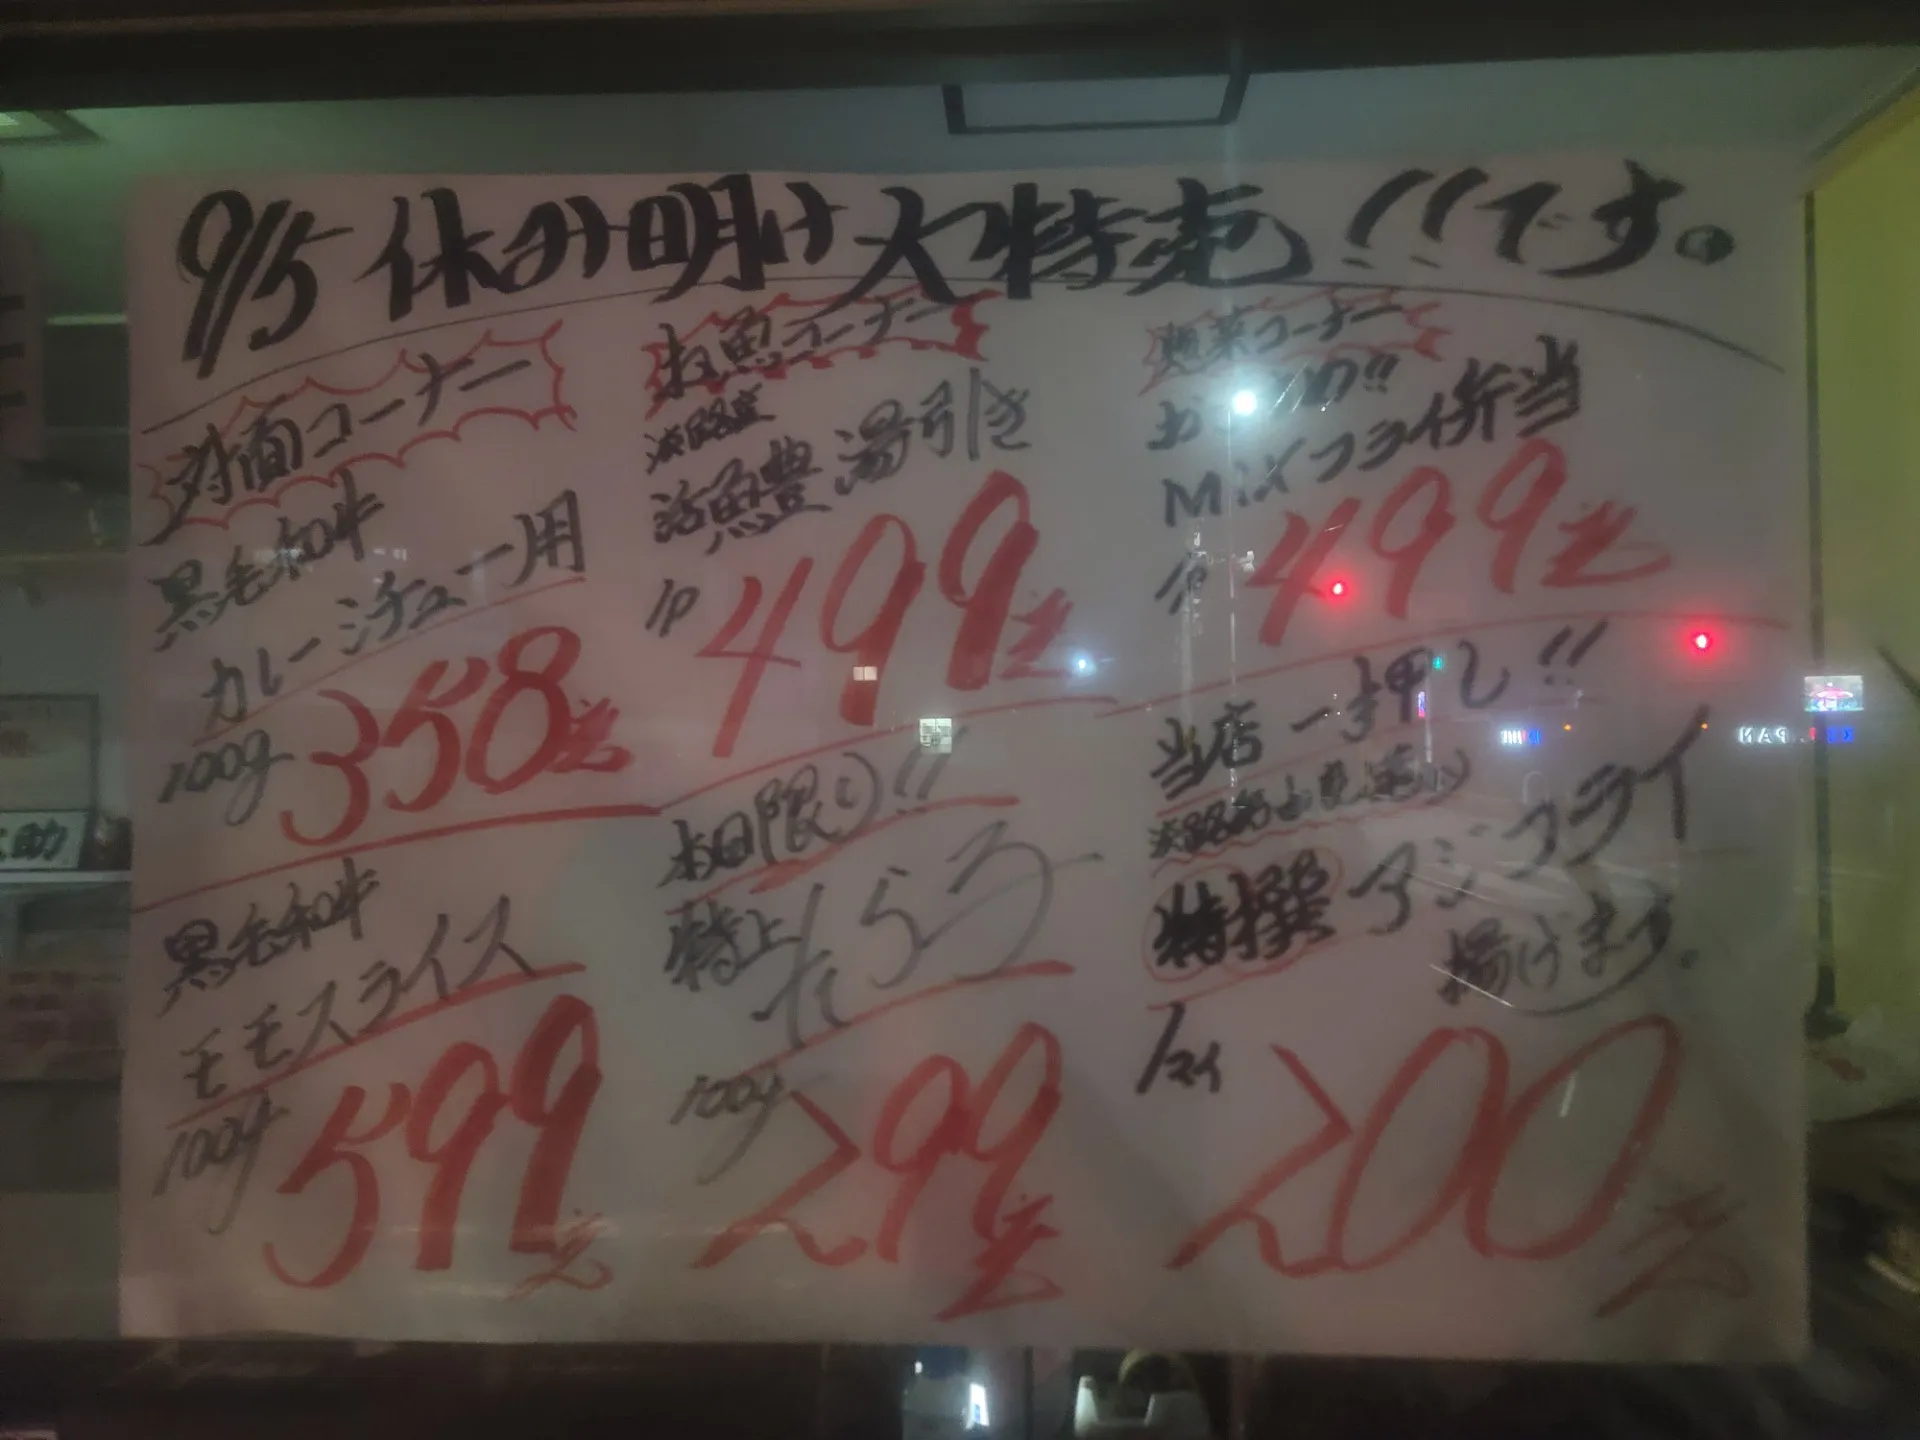 9/5 休み明け大特売!!です。
対面コーナー
黒毛和牛
カレーシチュー用
100g 358円
黒毛和牛
モモスライス
100g 599円
お魚コーナー
淡路産
活鱧 湯引き
1P 499円
本日限り!!
特上 たらこ
100g 299円
惣菜コーナー
MiXフライ弁当
499円
当店一押し!!
淡路
特撰 アジフライ
揚げます。
1マイ 200円
助